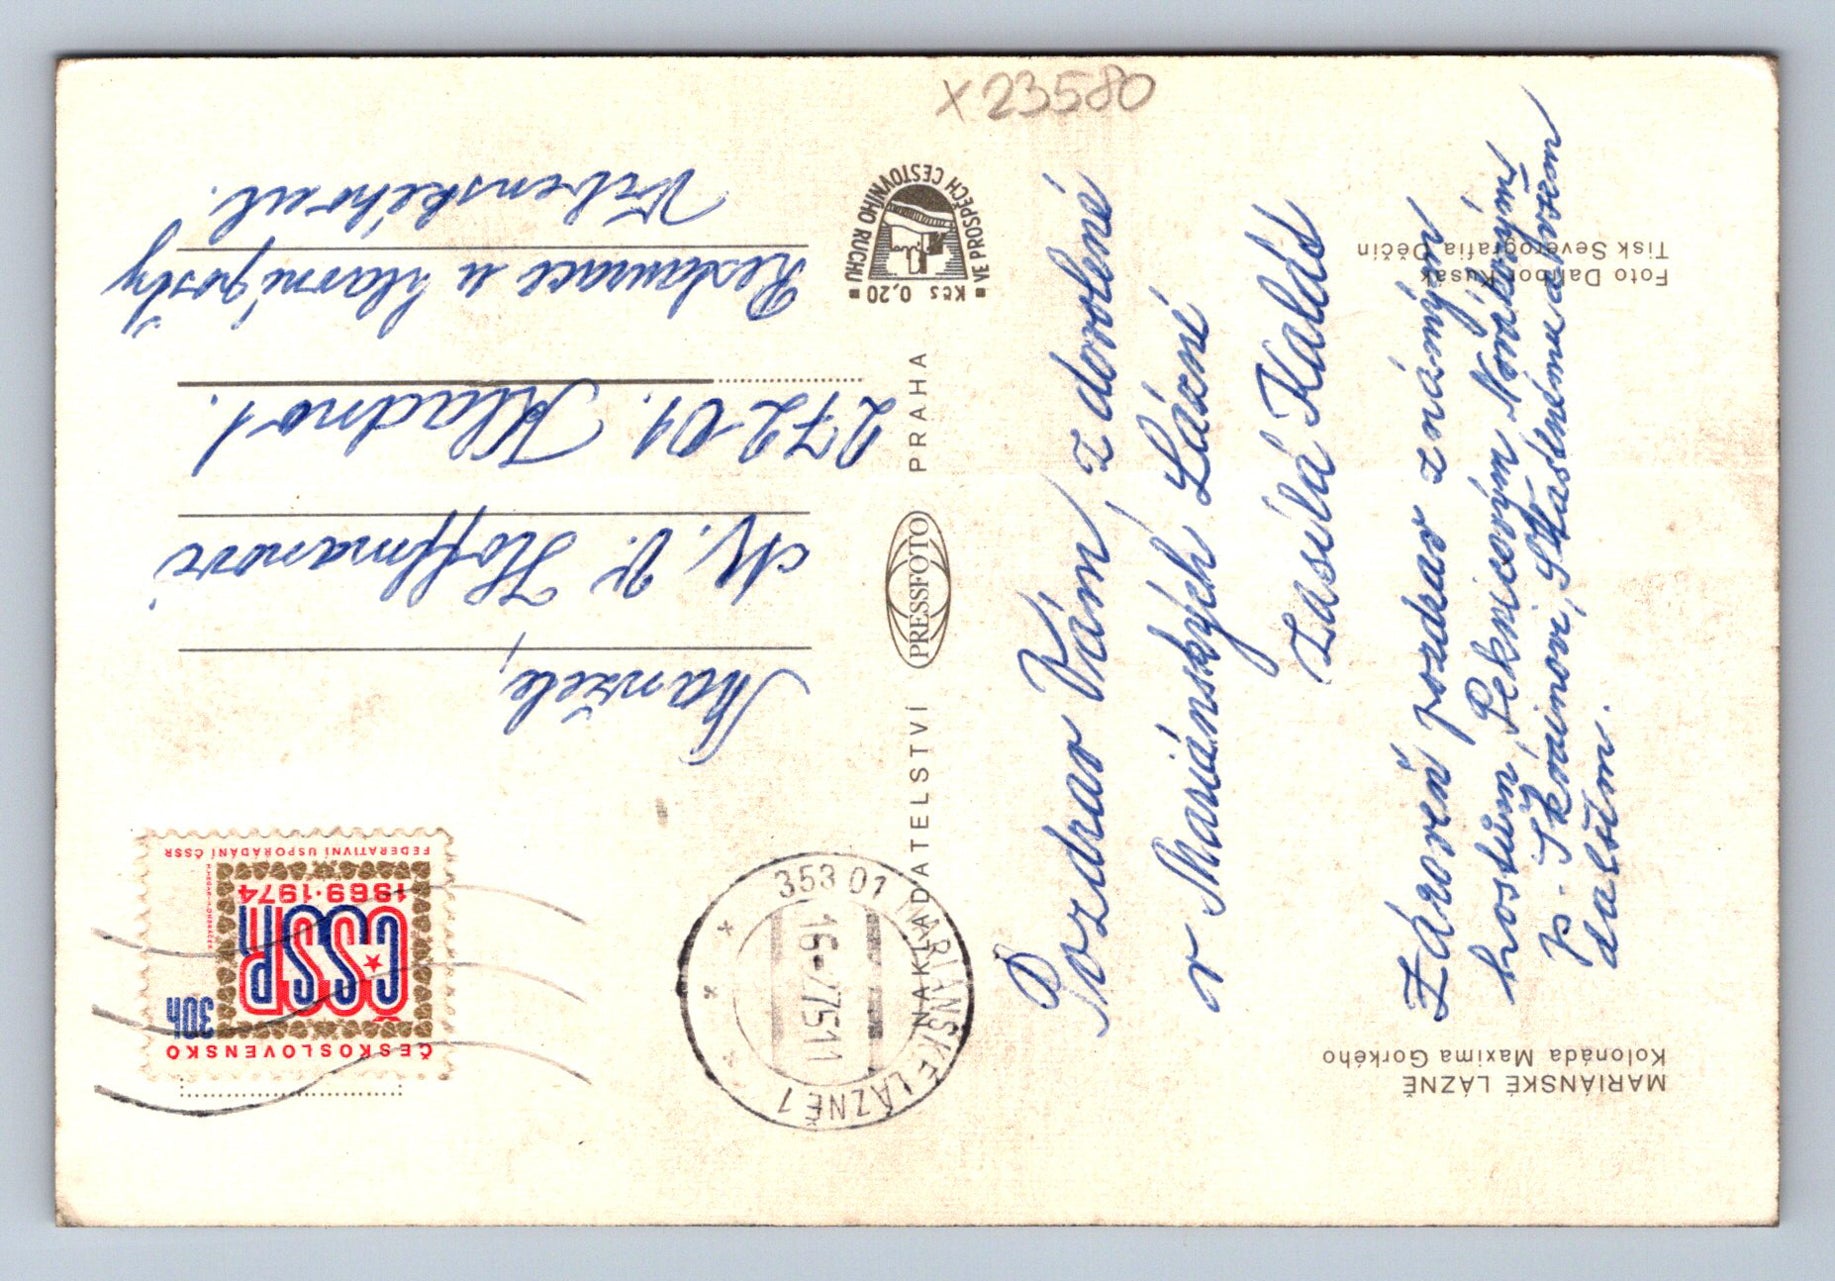 x 23580
MARIÁNSKÉ LÁZNĚ
Kolonáda Maxima Gorkého
Foto Dalibor Kusák
Tisk Severografia Děčín
Pozdrav Vám z dovolené
v Mariánských Lázní
zasílá Kalda
Zároveň pozdrav známým
hostům, Peknicovým Novákovým
p. Skřivínovi, Šťastnému a pozem
dalším.
NAKLADATELSTVÍ PRESSFOTO PRAHA
Kčs 0,20
VE PROSPĚCH CESTOVNÍHO RUCHU
ČESKOSLOVENSKO
30h
ČSSR
1969·1974
FEDERATIVNÍ USPOŘÁDÁNÍ ČSSR
353 01 MARIÁNSKÉ LÁZNĚ 1
16.-7.75 11
Manželé,
M. V. Hoffmanovi
272 01. Kladno 1.
Restaurace u hlavní pošty
Vrbenského ul.